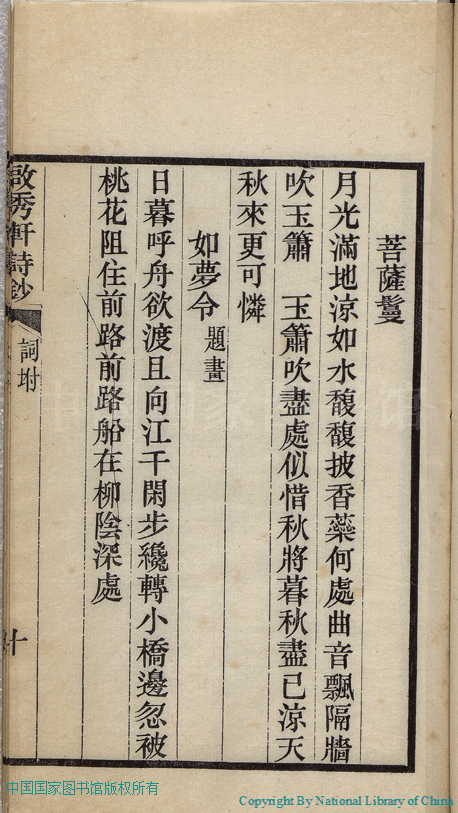 菩薩鬘
月光滿地涼如水馥馥披香藥何處曲音飄隔牆
吹玉簫　玉簫吹盡處似惜秋將暮秋盡已涼天
秋來更可憐
如夢令題畫
日暮呼舟欲渡且向江干閑步纔轉小橋邊忽被
桃花阻住前路前路船在柳陰深處
啟秀軒詩鈔
詞坿
十
中国国家图书馆版权所有
Copyright By National Library of China